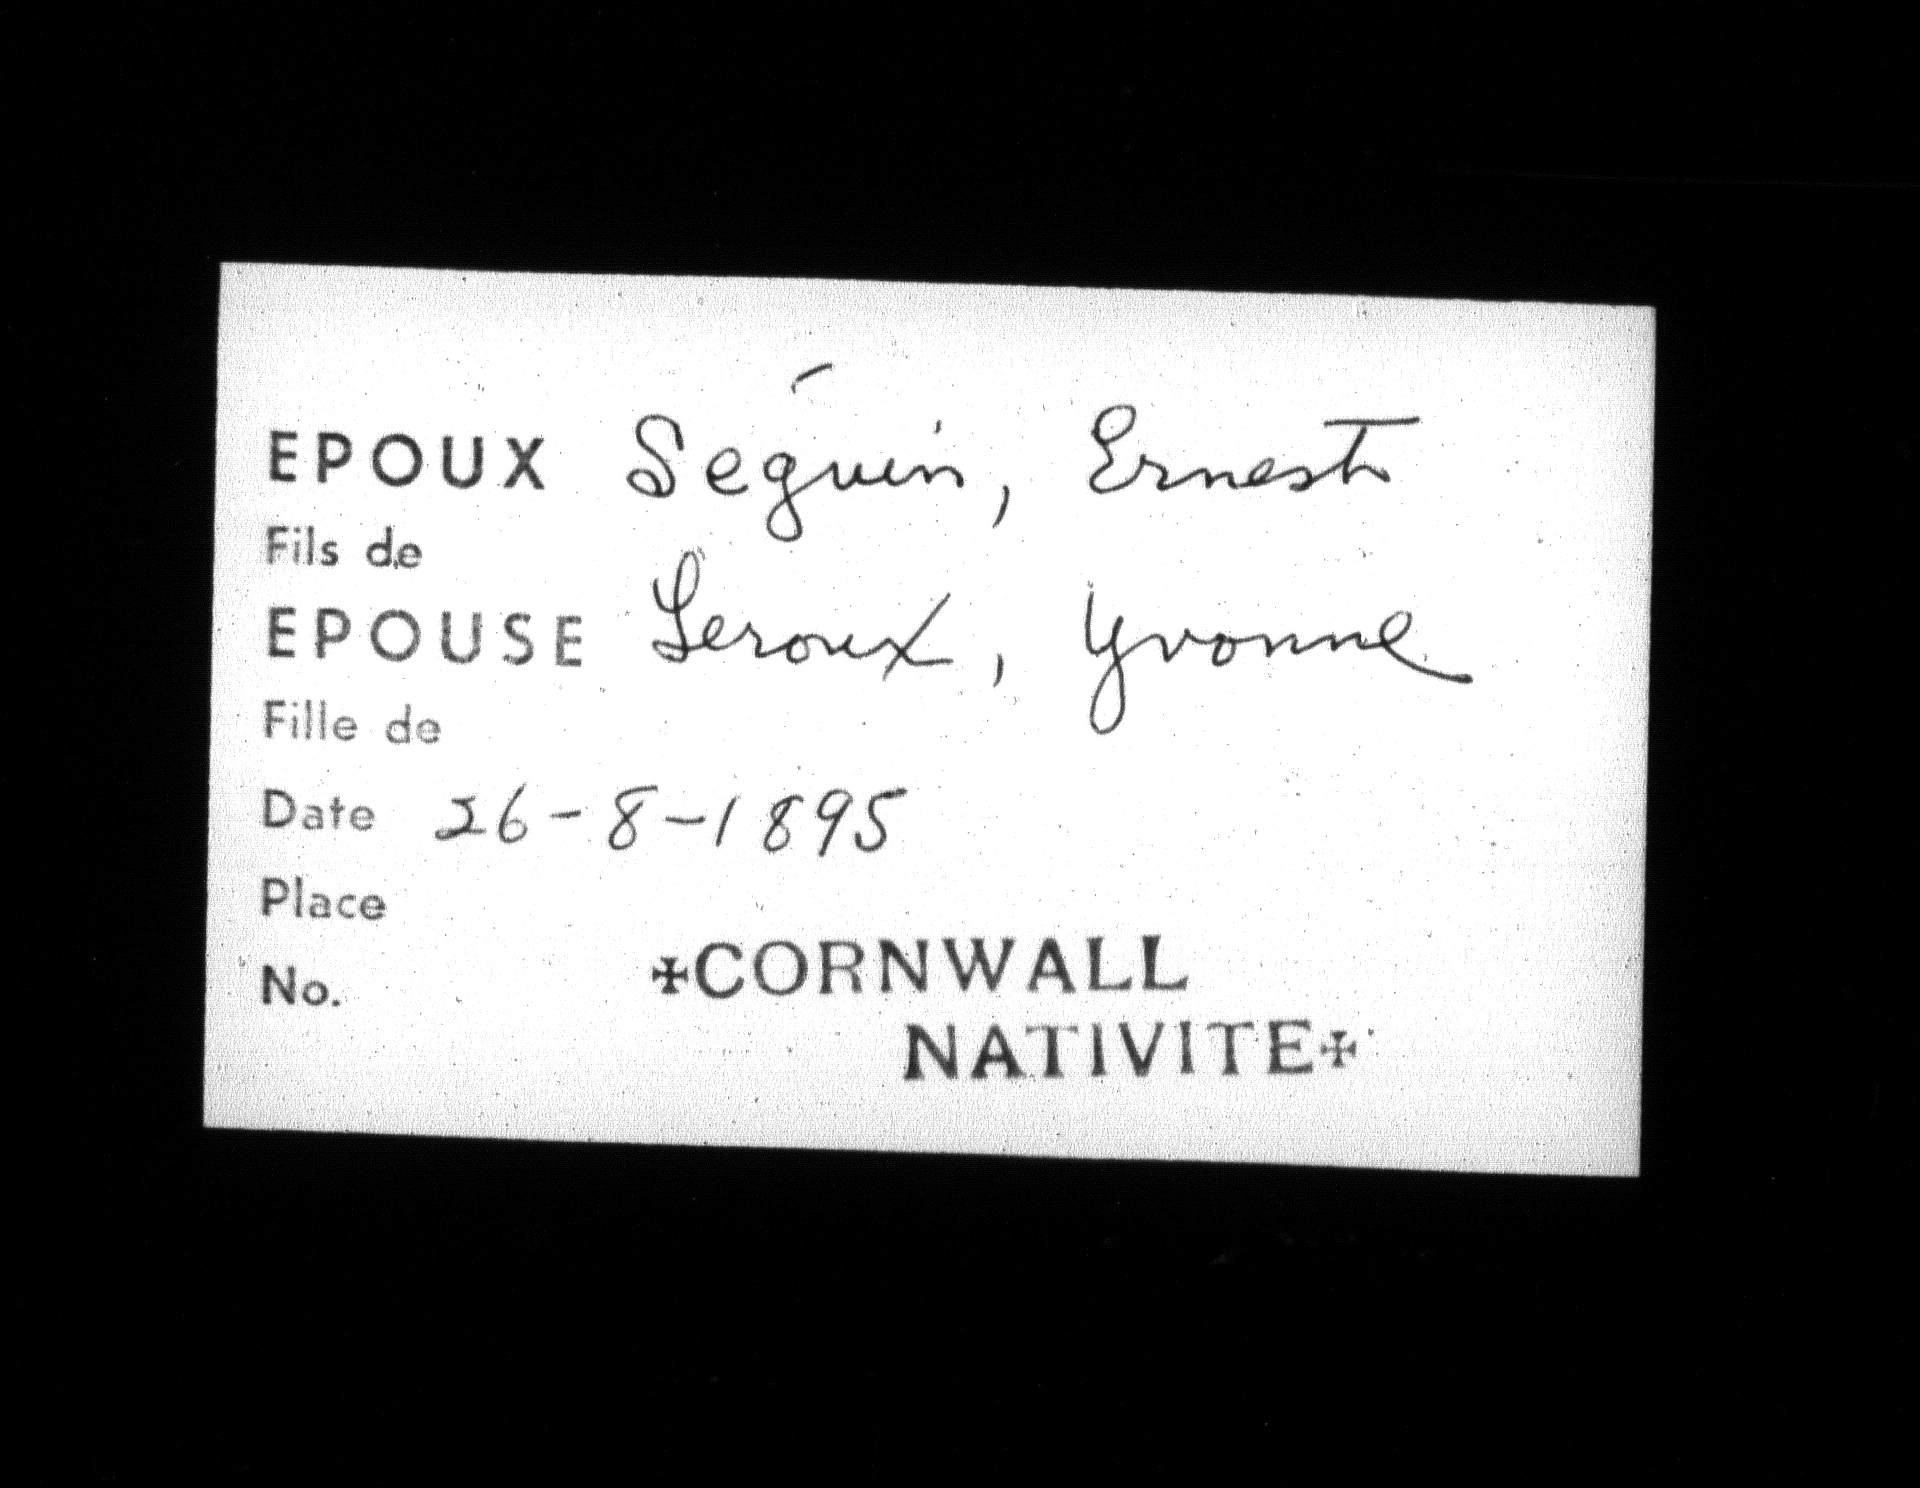 EPOUX Séguin, Ernest
Fils de
EPOUSE Leroux, Yvonne
Fille de
Date 26-8-1895
Place
No. ✠CORNWALL
NATIVITE✠